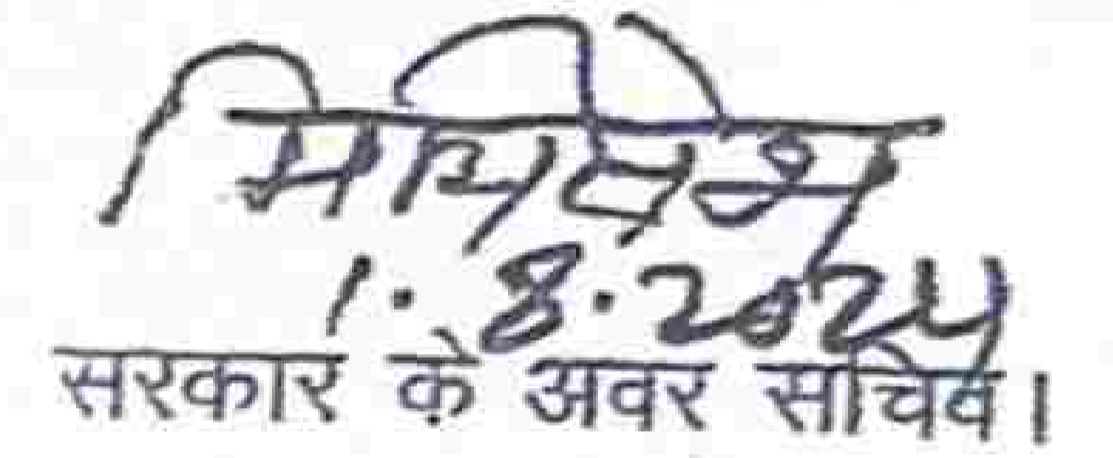 1.8.2024
सरकार के अवर सचिव।